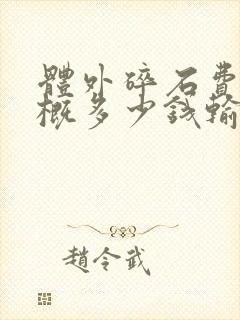 體外碎石費
概多少錢輸
趙令武